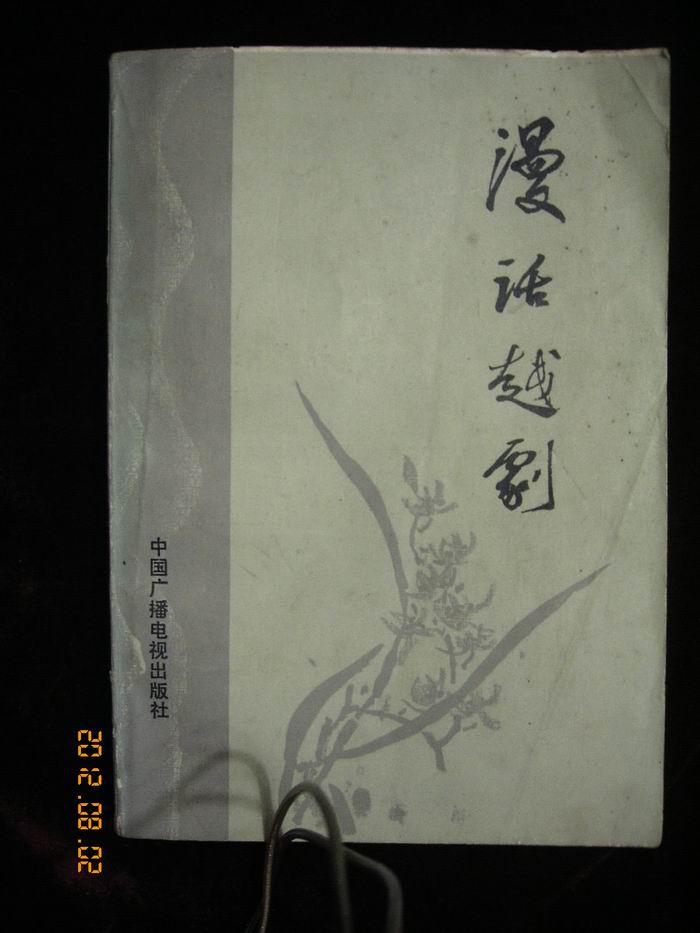 漫话越劇
中国广播电视出版社
2012.08.02